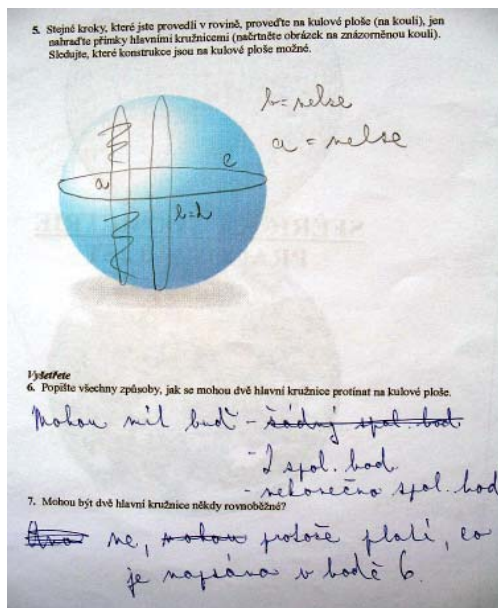 5. Stejné kroky, které jste provedli v rovině, proveďte na kulové ploše (na kouli), jen
nahraďte přímky hlavními kružnicemi (načrtněte obrázek na znázorněnou kouli).
Sledujte, které konstrukce jsou na kulové ploše možné.
b = nelse
a = nelse
c
a
b=2
Vyšetřete
6. Popište všechny způsoby, jak se mohou dvě hlavní kružnice protínat na kulové ploše.
Mohou mít buď - žádný spol. bod
- 2 spol. bod
- nekonečno spol. bod
7. Mohou být dvě hlavní kružnice někdy rovnoběžné?
Ano ne, mohou protože platí, co
je napsáno v bodě 6.